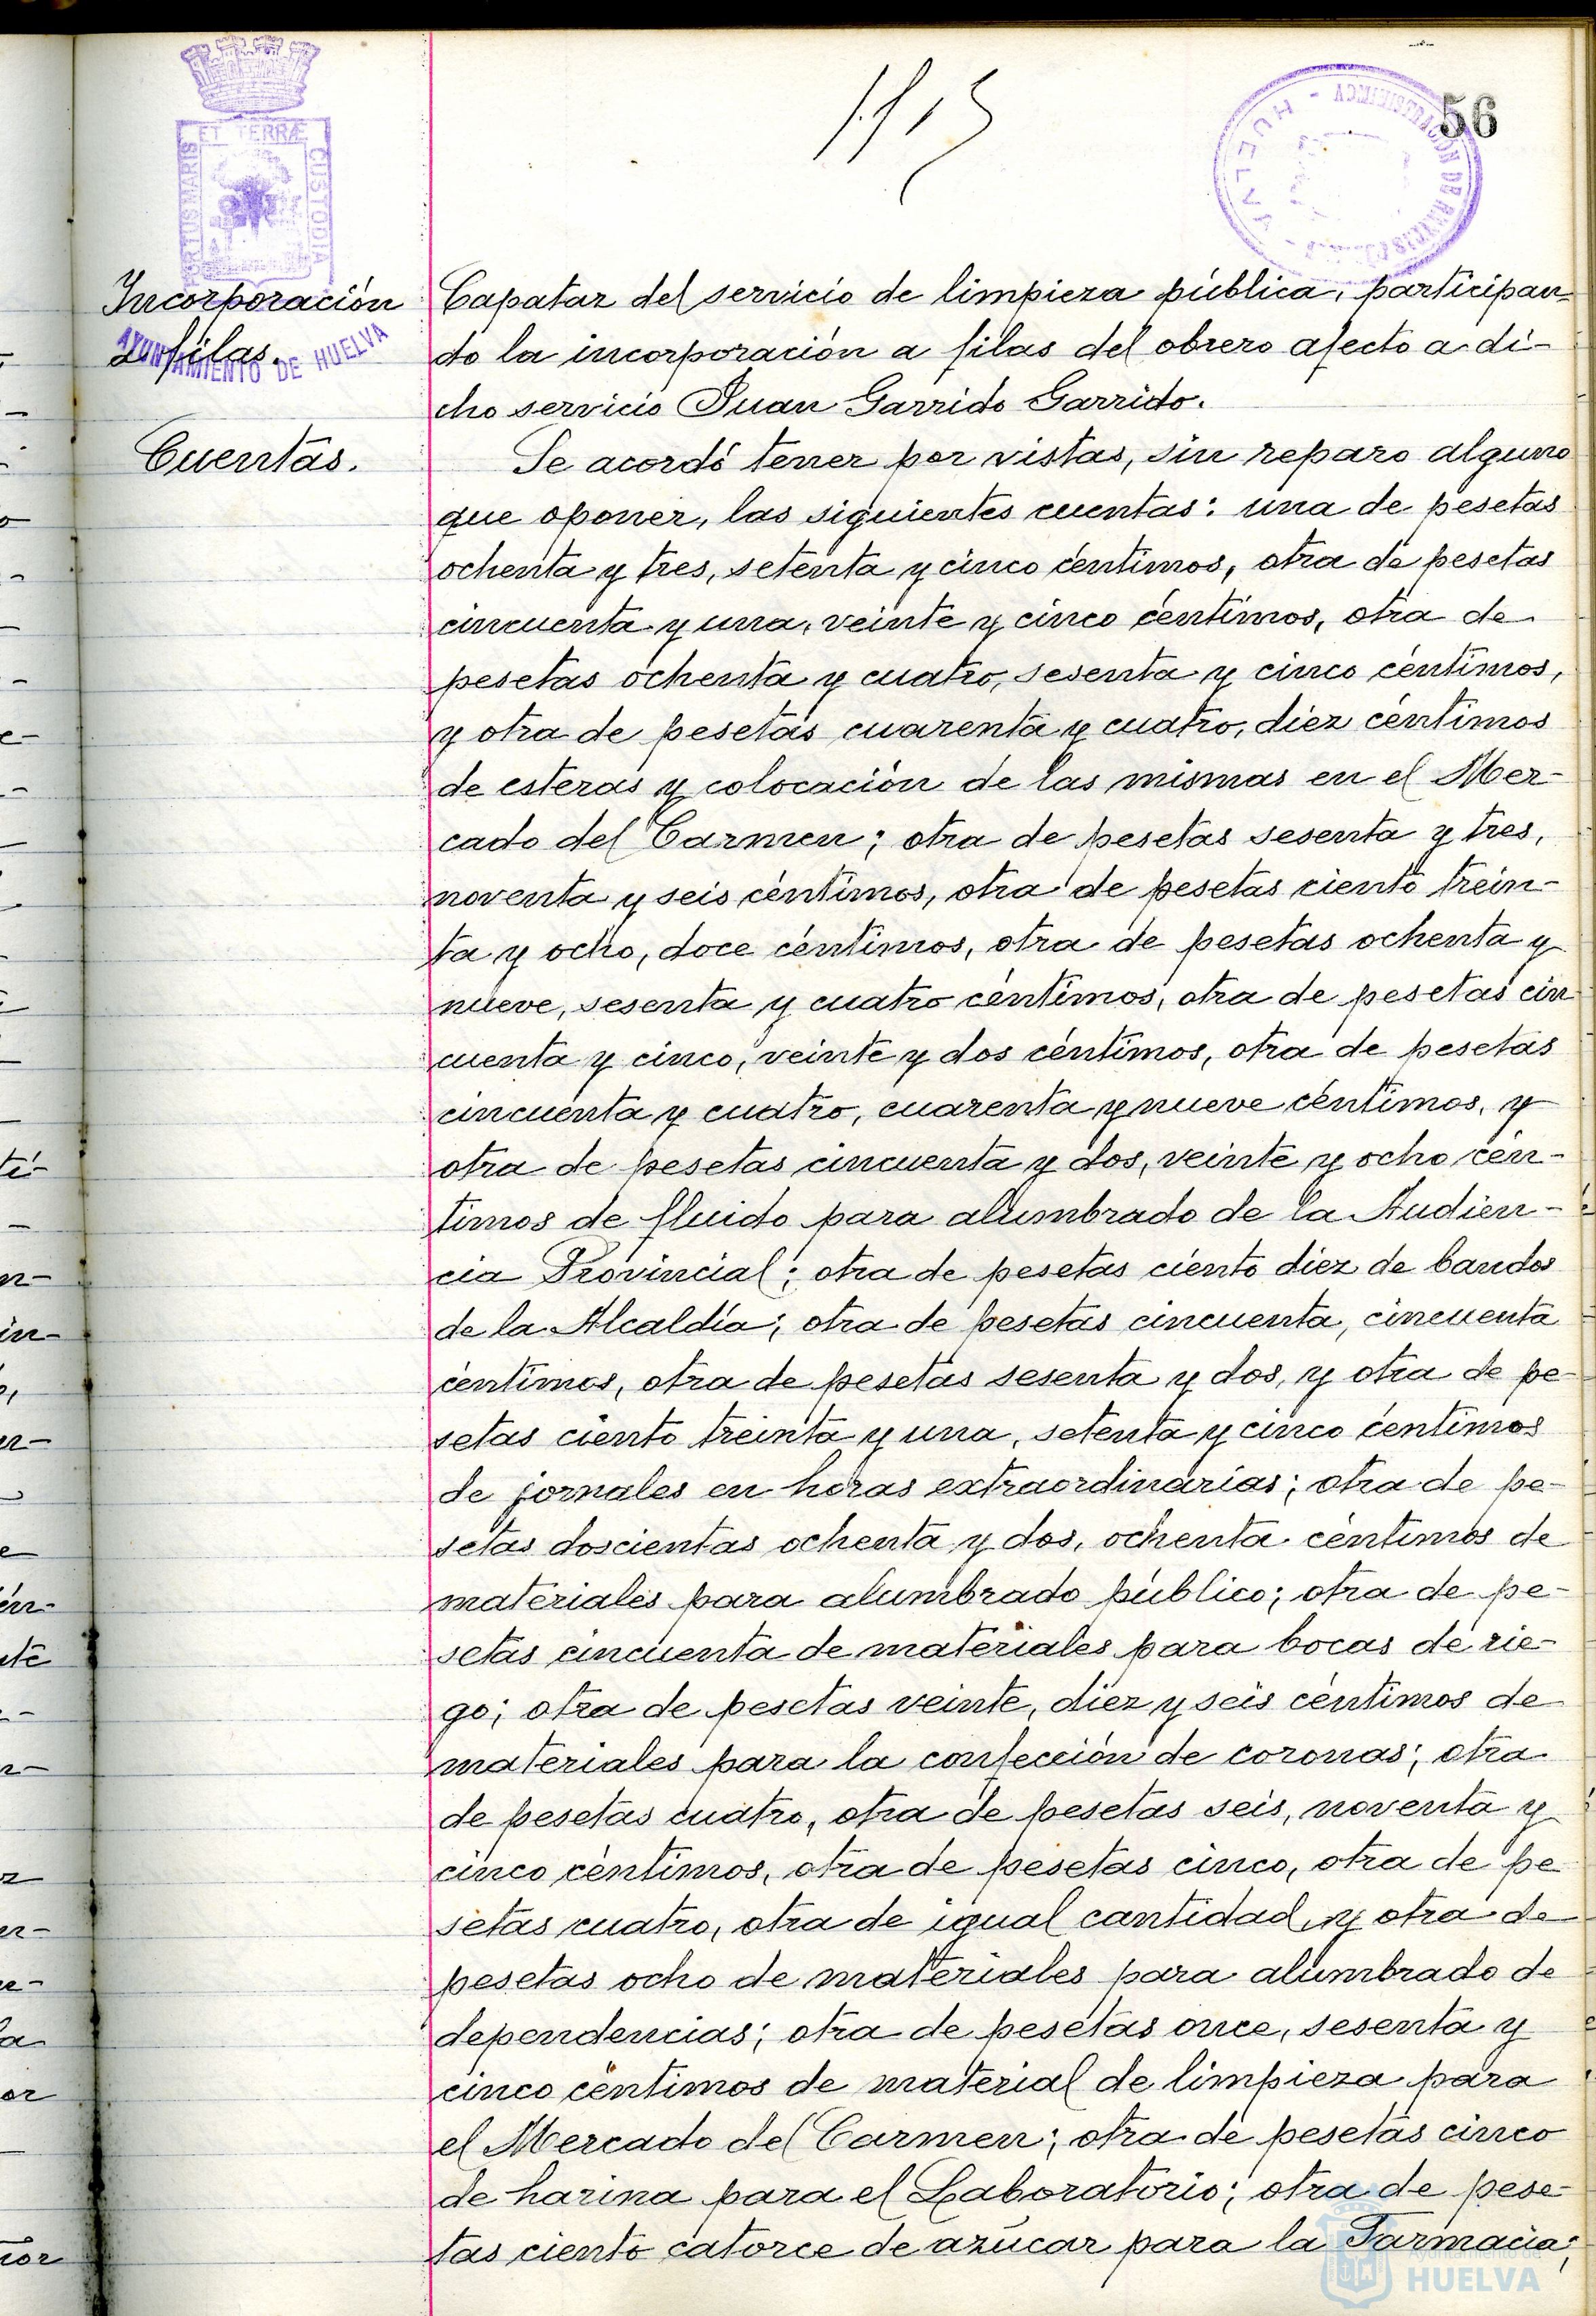 56
ET TERRÆ
PORTUS MARIS
CUSTODIA
AYUNTAMIENTO DE HUELVA
HUELVA
Incorporación
a filas.
Capataz del servicio de limpieza pública, participan-
do la incorporación a filas del obrero afecto a di-
cho servicio Juan Garrido Garrido.
Cuentas.
Se acordó tener por vistas, sin reparo alguno
que oponer, las siguientes cuentas: una de pesetas
ochenta y tres, setenta y cinco céntimos, otra de pesetas
cincuenta y una, veinte y cinco céntimos, otra de
pesetas ochenta y cuatro, sesenta y cinco céntimos,
y otra de pesetas cuarenta y cuatro, diez céntimos
de esteras y colocación de las mismas en el Mer-
cado del Carmen; otra de pesetas sesenta y tres,
noventa y seis céntimos, otra de pesetas ciento trein-
ta y ocho, doce céntimos, otra de pesetas ochenta y
nueve, sesenta y cuatro céntimos, otra de pesetas cin
cuenta y cinco, veinte y dos céntimos, otra de pesetas
cincuenta y cuatro, cuarenta y nueve céntimos, y
otra de pesetas cincuenta y dos, veinte y ocho cén-
timos de fluido para alumbrado de la Audien-
cia Provincial; otra de pesetas ciento diez de bandos
de la Alcaldía; otra de pesetas cincuenta, cincuenta
céntimos, otra de pesetas sesenta y dos, y otra de pe-
setas ciento treinta y una, setenta y cinco céntimos
de jornales en horas extraordinarias; otra de pe-
setas doscientas ochenta y dos, ochenta céntimos de
materiales para alumbrado público; otra de pe-
setas cincuenta de materiales para bocas de rie-
go; otra de pesetas veinte, diez y seis céntimos de
materiales para la confección de coronas; otra
de pesetas cuatro, otra de pesetas seis, noventa y
cinco céntimos, otra de pesetas cinco, otra de pe
setas cuatro, otra de igual cantidad, y otra de
pesetas ocho de materiales para alumbrado de
dependencias; otra de pesetas once, sesenta y
cinco céntimos de material de limpieza para
el Mercado del Carmen; otra de pesetas cinco
de harina para el Laboratorio; otra de pese-
tas ciento catorce de azúcar para la Farmacia;
Ayuntamiento de
HUELVA